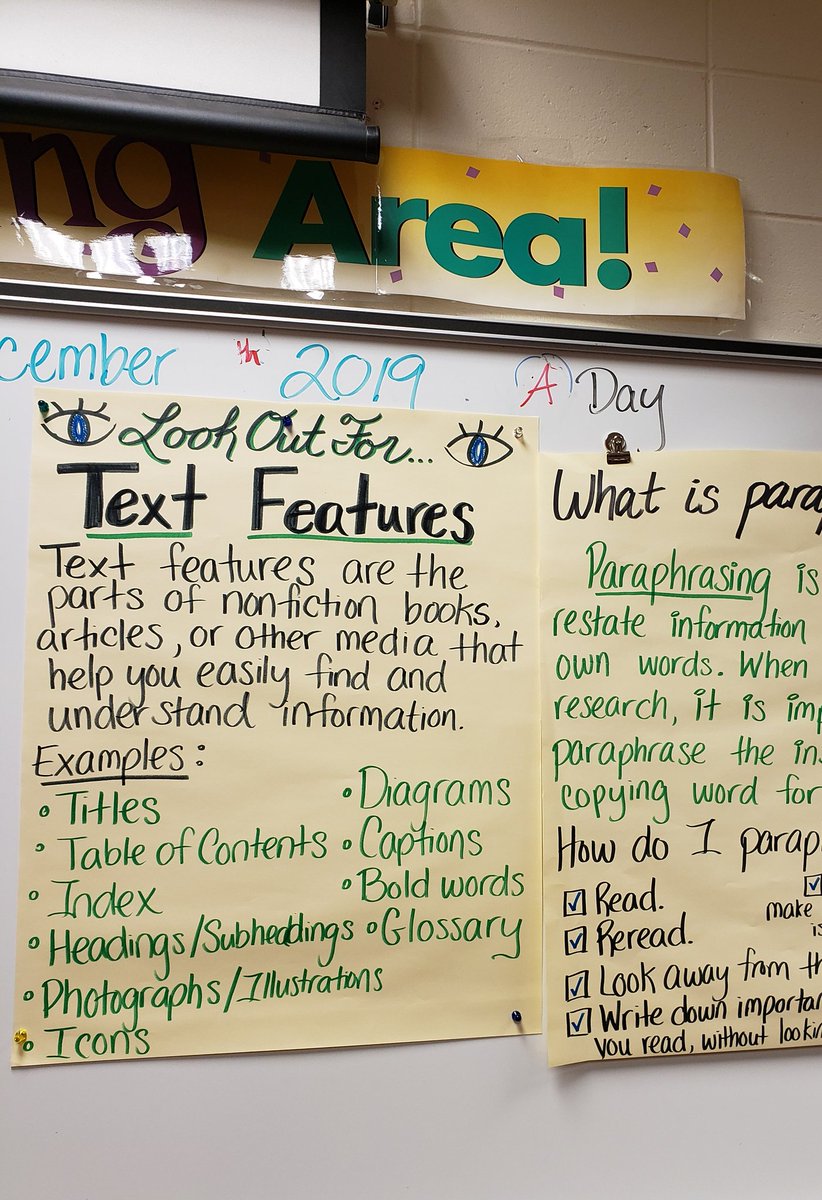 ng Area!
cember th 2019 A Day
Look Out For...
Text Features
Text features are the
parts of nonfiction books,
articles, or other media that
help you easily find and
understand information.
Examples:
• Titles
• Table of Contents
• Index
• Headings/Subheddings
• Photographs/Illustrations
• Icons
• Diagrams
• Captions
• Bold words
• Glossary
What is parap
Paraphrasing is
restate information
own words. When
research, it is imp
paraphrase the in
copying word for
How do I parap
☑ Read.
☑ Reread.
☑ Look away from th
☑ Write down importan
you read, without lookin
☑
make
is